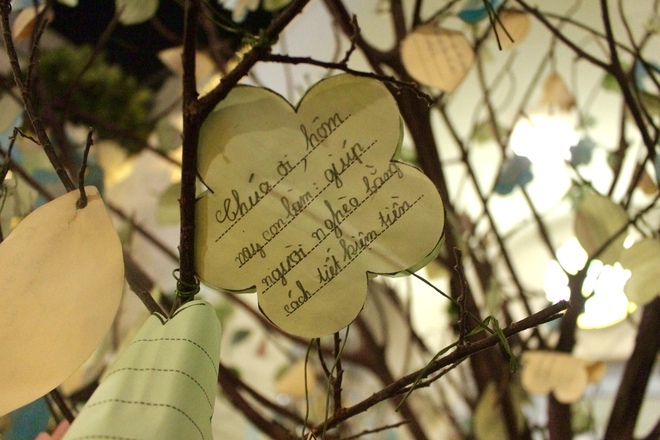 Chúa ơi, hôm
nay con làm: giúp
người nghèo bằng
cách tiết kiệm tiền